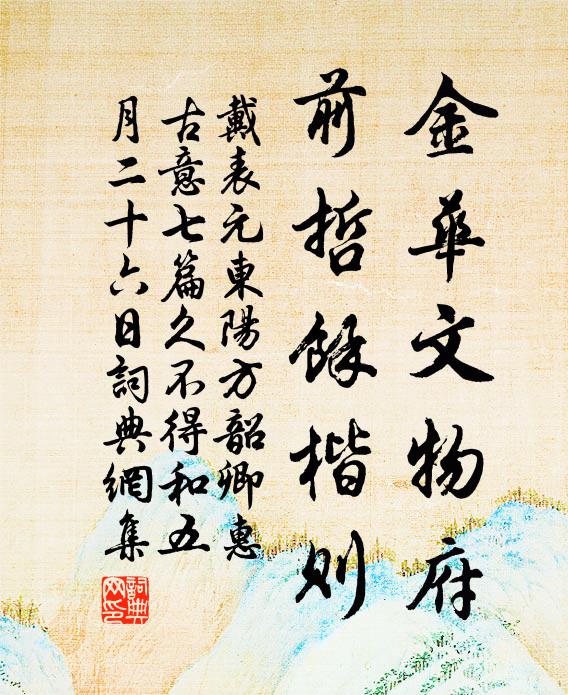 金華文物府
前哲餘楷則
戴表元東陽方韶卿惠
古意七篇久不得和五
月二十六日詞典網集
詞典網印